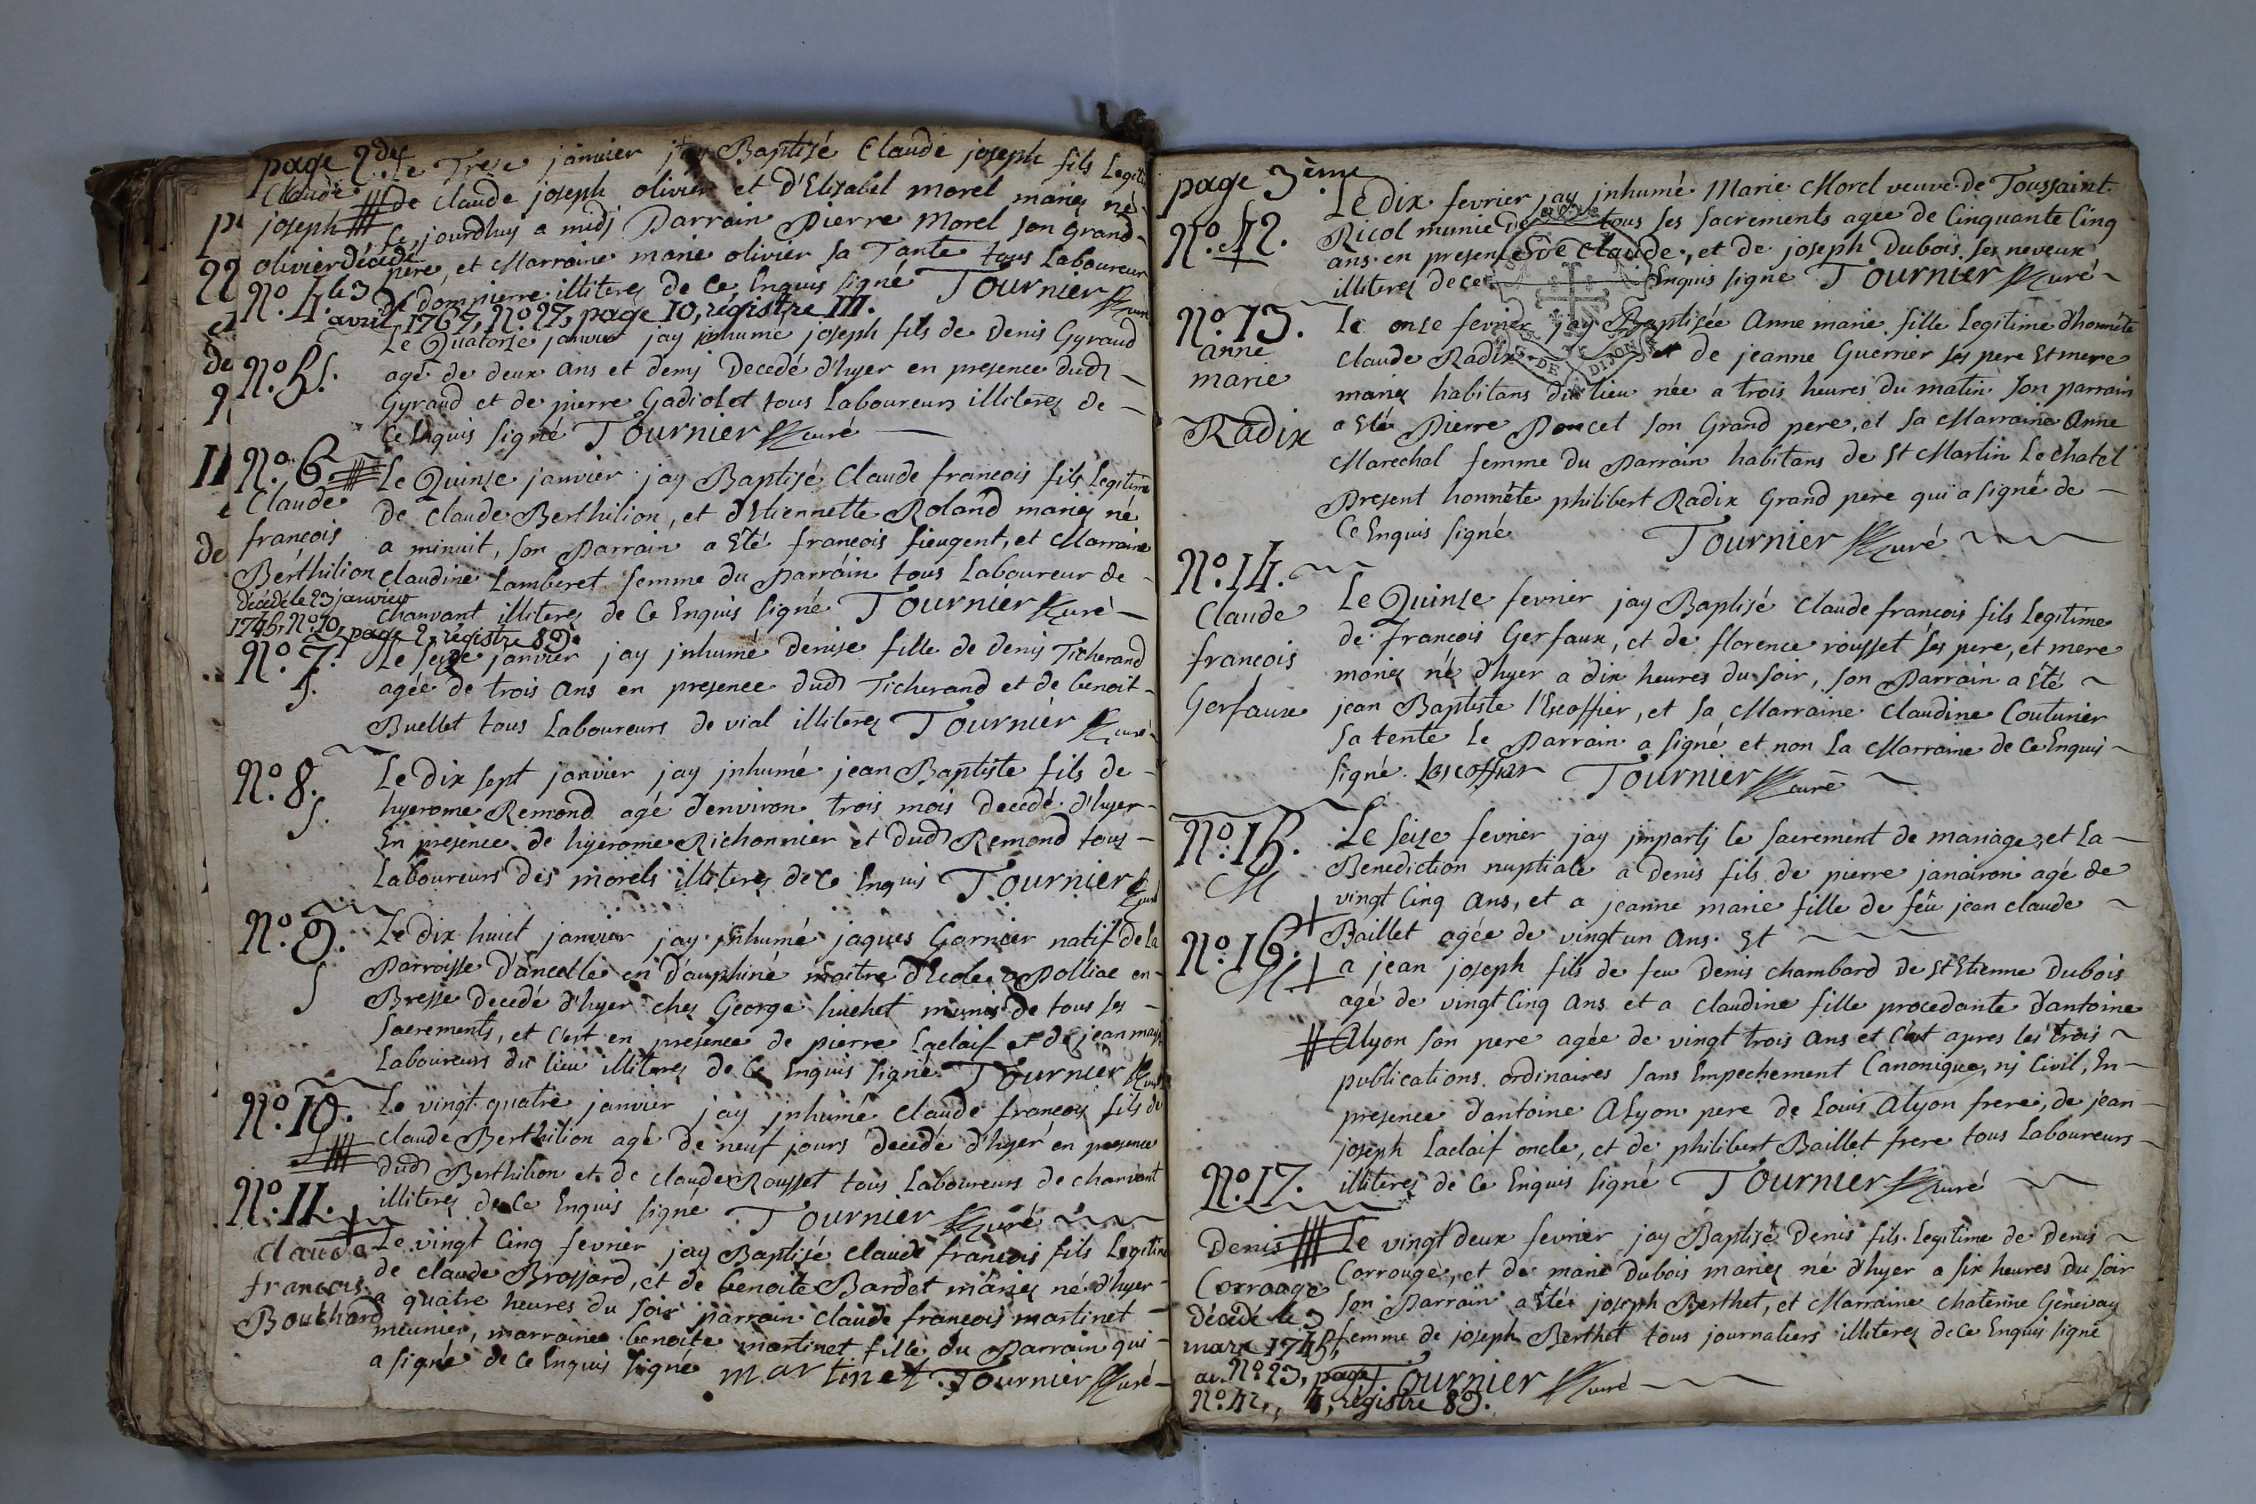 page 2de
Claude
joseph
olivier décédé
No. 4. le 3
avril 1767, No. 27, page 10, régistre III.
Le Treze janvier jay Baptisé Claude joseph fils Legit
de Claude joseph olivier et d'Elizabet morel mariez né
ce jourdhuy a midj Parrain Pierre Morel son grand
père, et Marraine marie olivier sa Tante tous Laboureur
de dompierre illiterez de ce Enquis signé Tournier curé
No. 5.
Le Quatorze janvier jay jnhumé joseph fils de Denis Gyraud
agé de deux ans et demj Decedé d'hyer en presence dud
Gyraud et de pierre Gadiolet tous Laboureurs illiterez de
Ce Enquis signé Tournier curé
No. 6.
Claude
françois
Bérthilion
décédé le 23 janvier
1745, No. 10, page 2, régistre 89.
Le Quinze janvier jay Baptisé Claude francois fils Legitime
de Claude Berthilion, et d'Etiennette Roland mariez né
a minuit, son Parrain a Eté francois fieugent, et Marraine
Claudine Lamberet femme du Parrain tous Laboureur de
Chanvant illiterez de Ce Enquis signé Tournier curé
No. 7.
S.
Le seize janvier jay jnhumé denise fille de denis Ticherand
agée de trois ans en presence dud Ticherand et de benoit
Buellet tous Laboureurs de vial illiterez Tournier curé
No. 8.
S.
Le dix sept janvier jay jnhumé jean Baptiste fils de
hyerome Remond agé d'environ trois mois decedé d'hyer
En presence de hyerome Richonnier et dud Remond tous
Laboureurs des morels illiterez de Ce Enquis Tournier curé
No. 9.
S
Le dix huict janvier jay jnhumé jaques Garnier natif de La
Parroisse d'ancelle en d'auphiné maitre d'Ecole a Polliac en
Bresse decedé d'hyer chez George huchet munis de tous ses
Sacrements, et c'est en presence de pierre Laclaif et de jean
Laboureurs du lieu illiterez de Ce Enquis signé Tournier curé
No. 10.
S.
Le vingt quatre janvier jay jnhumé Claude francois fils de
Claude Berthilion agé de neuf jours decedé d'hyer en presence
dud Berthilion et de claude Rousset tous Laboureurs de chanvant
illiterez de Ce Enquis signé Tournier curé
No. 11.
Claude
francois
Bouchard
Le vingt Cinq fevrier jay Baptisé claude francois fils Legitime
de claude Brossard, et de benoite Bardet mariez né d'hyer
a quatre heures du soir parrain Claude francois martinet
meunier, marrainee benoite martinet fille du Parrain qui
a signé de ce Enquis signé martinet Tournier curé
page 3ème
No. 12.
Le dix fevrier jay jnhumé Marie Morel veuve de Toussaint
Ricol munie de tous ses sacrements agée de Cinquante Cinq
ans en presence de Claude, et de joseph Dubois ses neveux
illiterez de ce Enquis signé Tournier curé
No. 13.
anne
marie
Radix
Le onze fevrier jay Baptisée Anne marie fille Legitime d'honnête
Claude Radix et de jeanne Guerrier ses pere et mere
mariez habitans du lieu née a trois heures du matin son parrain
a Eté Pierre Poncet son Grand pere, et sa Marraine Anne
Marechal femme du Parrain habitans de St Martin Le chatel
Present honnête philibert Radix Grand pere qui a signé de
Ce Enquis signé Tournier curé
No. 14.
Claude
francois
Gerfaux
Le Quinze fevrier jay Baptisé Claude francois fils Legitime
de francois Gerfaux, et de florence rousset ses pere, et mere
mariez né d'hyer a dix heures du soir, son Parrain a Eté
jean Baptiste l'Escoffier, et sa Marraine Claudine Couturier
sa tente Le Parrain a signé et non La Marraine de Ce Enquis
signé Lescoffier Tournier curé
No. 15.
M
Le seize fevrier jay jmpartj le sacrement de mariage, et La
Benediction nuptiale a denis fils de pierre janairon agé de
vingt Cinq ans, et a jeanne marie fille de feu jean claude
Baillet agée de vingt un ans. Et
No. 16.
M
a jean joseph fils de feu Denis chambard de St Etienne Dubois
agé de vingt Cinq ans et a Claudine fille procedante d'antoine
Alyon son pere agée de vingt trois ans et c'est apres les trois
publications ordinaires sans Empechement Canonique, nj Civil, En
presence d'antoine Alyon pere de Louis Alyon frere, de jean
joseph Laclaif oncle, et de philibert Baillet frere tous Laboureurs
illiterez de Ce Enquis signé Tournier curé
No. 17.
Denis
Corrouge
décédé le 3
mars 1745,
Le vingt deux fevrier jay Baptisé Denis fils Legitime de Denis
Corrouge, et de marie Dubois mariez né d'hyer a six heures du soir
son Parrain a Eté joseph Berthet, et Marraine Chaterine Genevay
femme de joseph Berthet tous journaliers illiterez de Ce Enquis signé
No. 23, page Tournier curé
4, régistre 89.